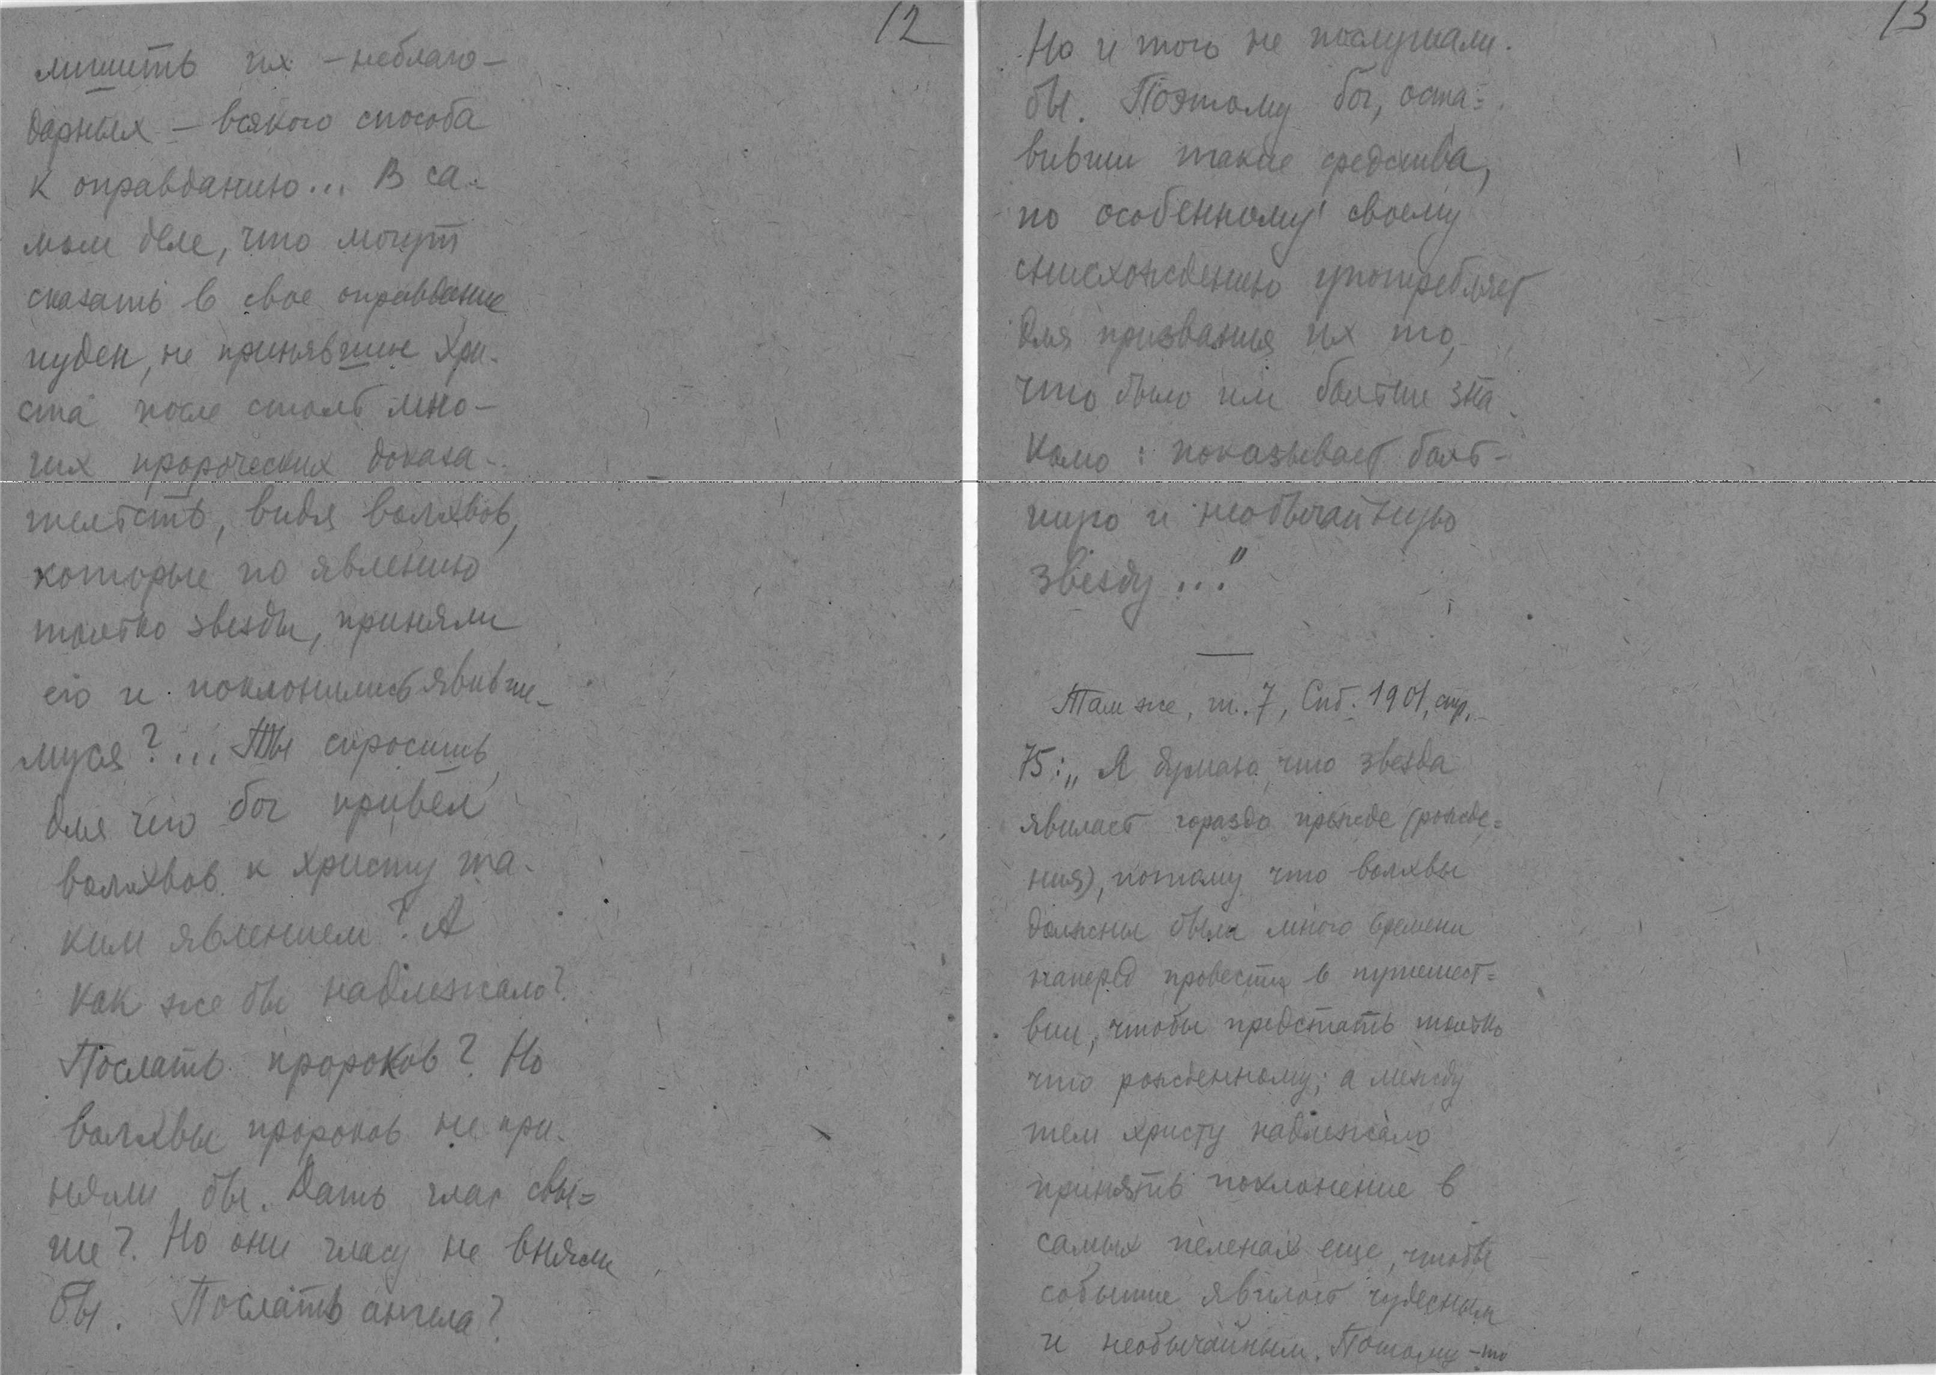 12
лишить их – неблаго-
дарных – всякого способа
к оправданию... В са-
мом деле, что могут
сказать в свое оправдание
иудеи, не принявшие Хри-
ста после столь мно-
гих пророческих доказа-
тельств, видя волхвов,
которые по явлению
только звезды, приняли
его и поклонились явивше-
муся?... Ты спросишь,
для чего бог привел
волхвов к христу та-
ким явлением? А
как же бы надлежало?
Послать пророков? Но
волхвы пророков не при-
няли бы. Дать глас свы=
ше? Но они гласу не вняли
бы. Послать ангела?
13
Но и того не послушали
бы. Поэтому бог, оста=
вивши такие средства,
по особенному своему
снисхождению употребляет
для призвания их то,
что было им больше зна-
комо: показывает боль-
шую и необычайную
звезду..."
Там же, т. 7, Спб. 1901, стр.
75: „Я думаю что звезда
явилась гораздо прежде (рожде=
ния), потому что волхвы
должны были много времени
наперед провести в путешест=
вии, чтобы предстать только
что рожденному; а между
тем христу надлежало
принять поклонение в
самых пеленах еще, чтобы
событие явилось чудесным
и необычайным. Потому-то